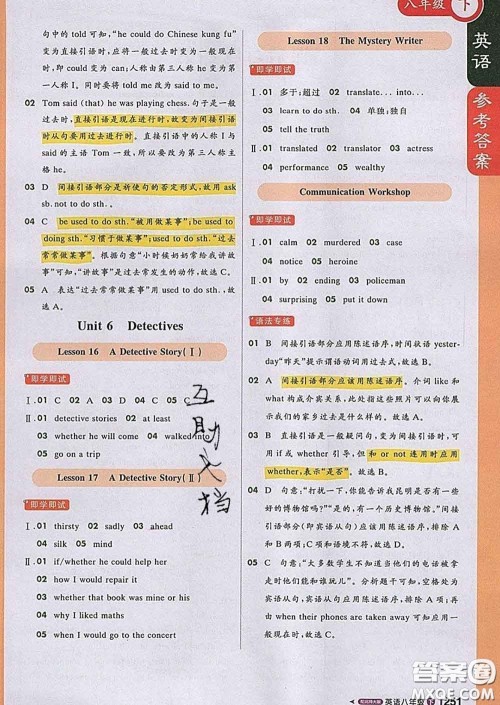 句中的 told 可知，“he could do Chinese kung fu”
变为直接引语时，应将一般过去时变为一般现
在时，即 could 变为 can；人称由第三人称 he
变为第一人称 I，同时要将 told me 改为 said to
me，told me 改为 said to me。
02 Tom said (that) he was playing chess. 句子是一般
过去时，直接引语是现在进行时，故变为间接引语
时从句要用过去进行时。直接引语中的人称 I 与
said 的主语 Tom 一致，所以要改为第三人称主
格 he。
03 D 间接引语部分是祈使句的否定形式，故用 ask
sb. not to do sth.。
04 C be used to do sth.“被用做某事”；be used to
doing sth.“习惯于做某事”；used to do sth.“过去
常常做某事”。根据句意“小时候奶奶常给我讲
故事”可知，“讲故事”是过去常发生的动作。故
选 C。
05 A 表达“过去常常做某事”用 used to do sth.，故
选 A。
Unit 6 Detectives
Lesson 16 A Detective Story(Ⅰ)
即学即试
Ⅰ.01 A 02 A 03 A 04 C 05 A
Ⅱ.01 detective stories 02 at least
03 whether he will come 04 walked into
05 go on a trip
Lesson 17 A Detective Story(Ⅱ)
即学即试
Ⅰ.01 thirsty 02 sadly 03 ahead
04 silk 05 mind
Ⅱ.01 if/whether he could help her
02 how I would repair it
03 whether that book was mine or his
04 why I liked maths
05 when I would go to the concert
互助文档
Lesson 18 The Mystery Writer
即学即试
Ⅰ.01 多于；超过 02 translate...into...
03 learn to do sth. 04 单独；独自
05 tell the truth
Ⅱ.01 dead 02 translator 03 actress
04 performance 05 wealthy
Communication Workshop
即学即试
Ⅰ.01 calm 02 murdered 03 case
04 notice 05 heroine
Ⅱ.01 by 02 ending 03 policeman
04 surprising 05 put it down
语法专练
01 B 间接引语部分应用陈述语序，时间状语 yester-
day“昨天”提示谓语动词用过去式，故选 B。
02 A 间接引语部分应该用陈述语序。介词 like 和
what 构成介宾关系，此处指这些照片可以向你
展示我们的家乡过去是什么样的。故选 A。
03 B 直接引语是一般疑问句，变为间接引语时，可
用 if 或 whether 引导，但和 or not 连用时应用
whether，表示“是否”。故选 B。
04 D 句意：“打扰一下，你能告诉我昆明是否有一些
好的博物馆吗？”“是的，有一些好的博物馆。”间
接引语部分（即宾语从句）应该用陈述语序，排除 A
和 B 两项；C 项不符合题意，排除。故选 D。
05 C 句意：“大多数学生不知道当他们的电话被拿
走时他们能和谁玩儿”。分析题干可知，空格处为
宾语从句，宾语从句应用陈述语序，排除 A 项；再
由 when their phones are taken away 可知应用一
般现在时，故选 C。
八年级 下
英语
参考答案
英语八年级 下 T251
答案圈
MXQE.COM